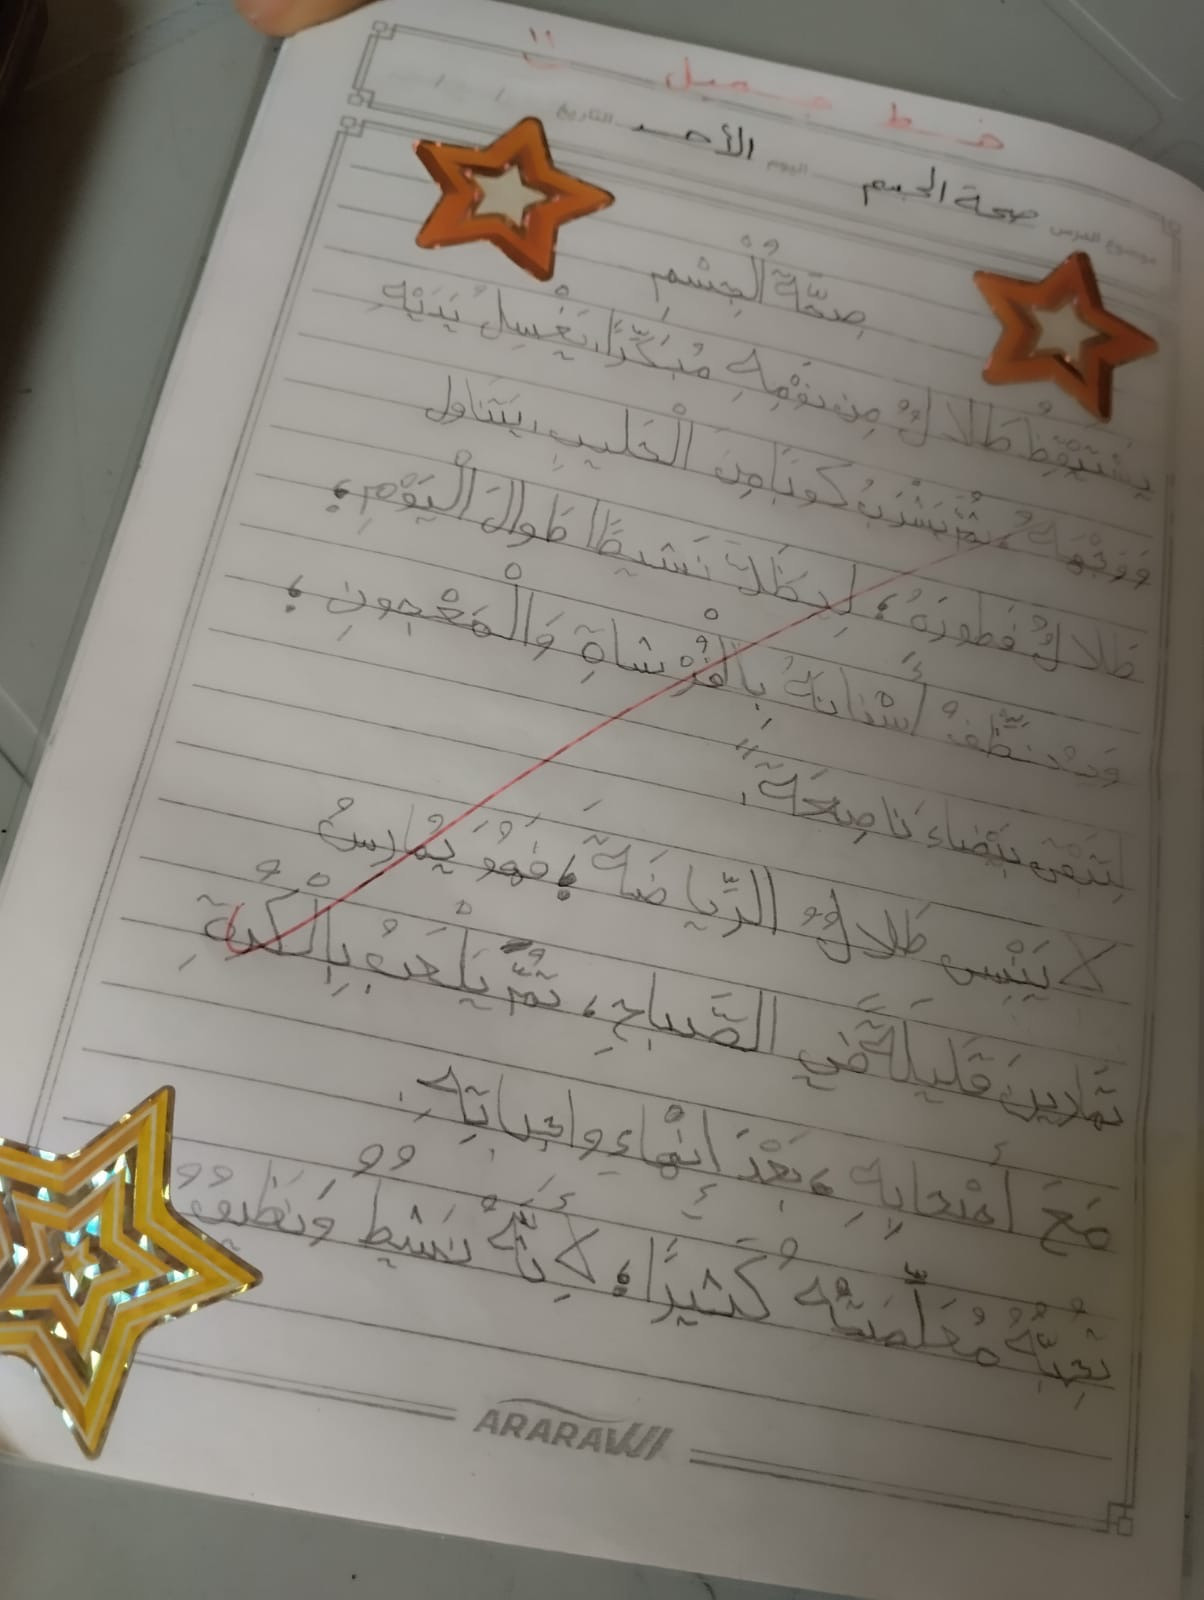 خط جميل
موضوع الدرس صحة الجسم اليوم الأحد التاريخ
صِحَّةُ الْجِسْمِ
يَسْتَيْقِظُ طَلَالٌ مِن نَوْمِهِ مُبَكِّرًا، يَغْسِلُ يَدَيْهِ
وَوَجْهَهُ، ثُمَّ يَشْرَبُ كُوبًا مِنَ الْحَليبِ، يَتَناوَل
طَلالٌ فَطورَهُ، لِيَظَلَّ نَشيطًا طَوالَ الْيَوْمِ،
وَيُنَظِّفُ أَسْنانَهُ بِالْفُرْشاةِ وَالْمَعْجونِ،
لِتَبْقى بَيْضاءَ ناصِعَةً.
لا يَنْسى طَلالٌ الرِّياضَةَ، فَهُوَ يُمارِسُ
تَمارينَ قَليلَةً في الصَّباحِ، ثُمَّ يَلْعَبُ بِالْكُرَةِ
مَعَ أَصْحابِهِ، بَعْدَ انْتِهاءِ واجِباتِهِ.
تُحِبُّهُ مُعَلِّمَتُهُ كَثيرًا، لِأَنَّهُ نَشيطٌ وَنَظيفٌ
ARARAT